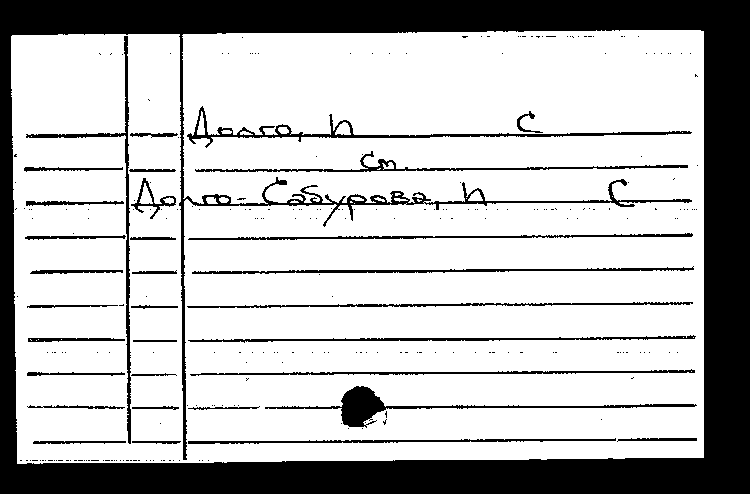 Долго, п С
см.
Долго-Сабурова, п С